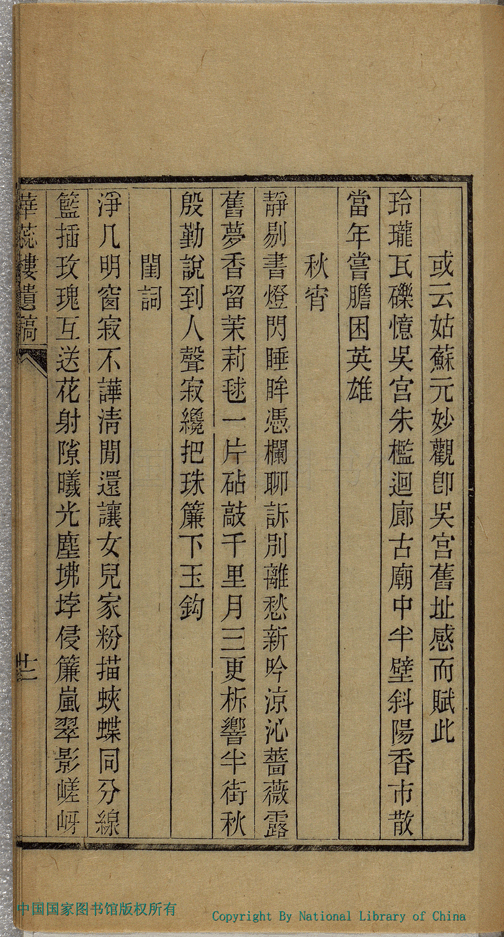 或云姑蘇元妙觀卽吳宮舊址感而賦此
玲瓏瓦礫憶吳宮朱檻迴廊古廟中半壁斜陽香市散
當年嘗膽困英雄
秋宵
靜剔書燈閃睡眸憑欄聊訴別離愁新吟涼沁薔薇露
舊夢香留茉莉毬一片砧敲千里月三更柝響半街秋
殷勤說到人聲寂纔把珠簾下玉鈎
閨詞
淨几明窗寂不譁淸閒還讓女兒家粉描蛺蝶同分線
籃插玫瑰互送花射隙曦光塵坲垺侵簾嵐翠影嵯岈
華蕊樓遺稿
廿二
中国国家图书馆版权所有
Copyright By National Library of China